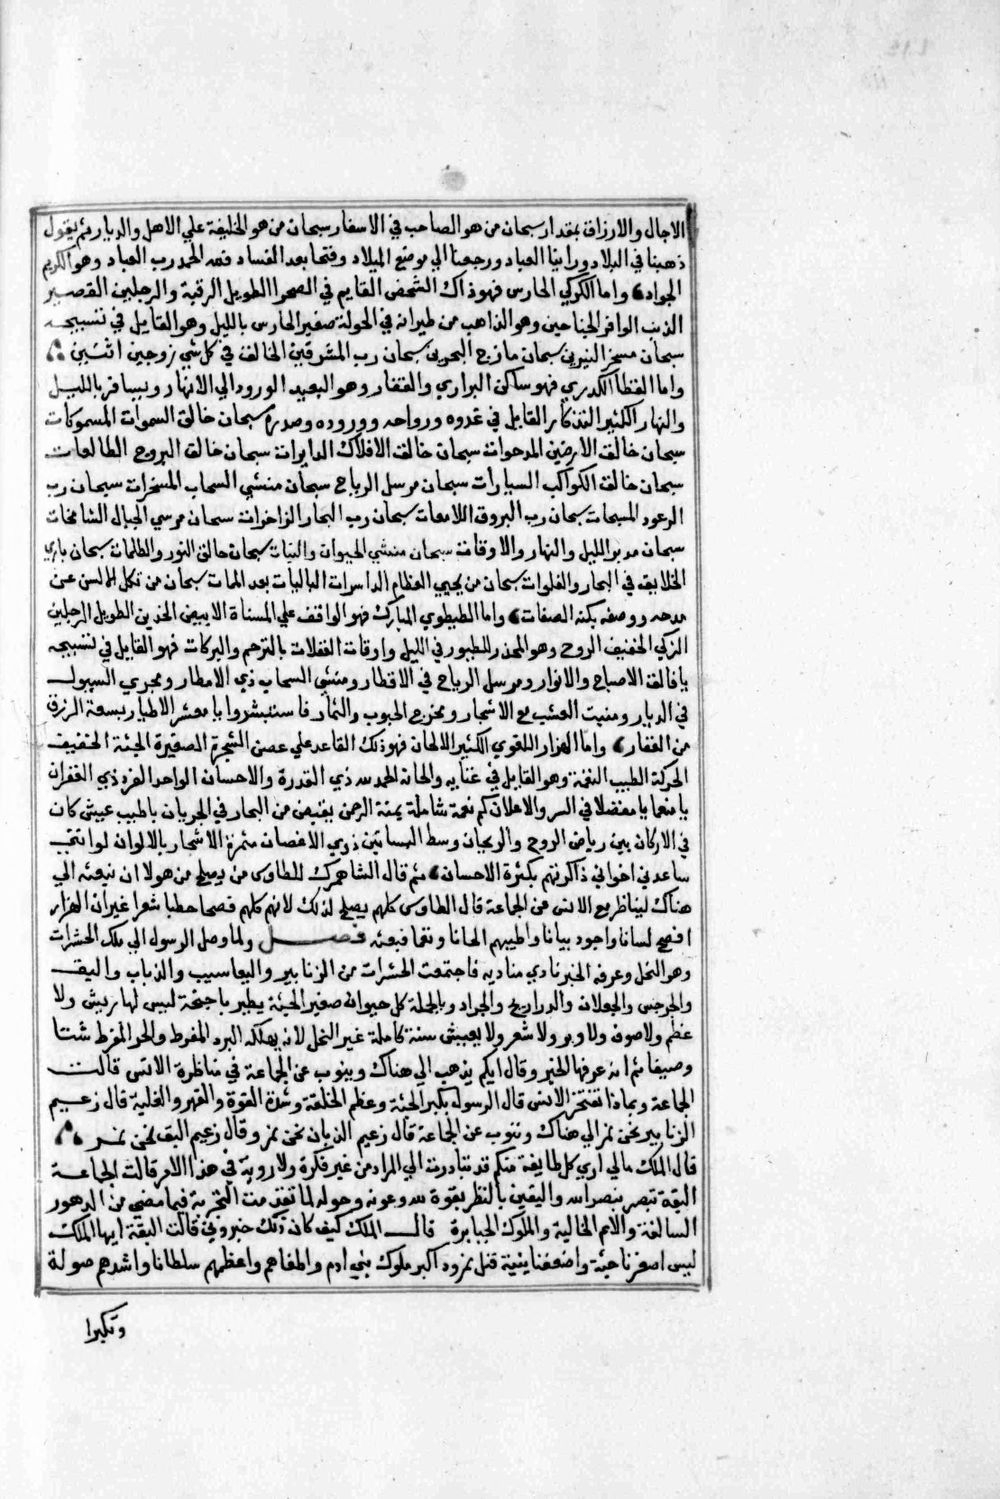 الاجال والارزاق بمقدار سبحان من هو الصاحب في الاسفار سبحان من هو الخليفة علي الاهل والديار ثم يقول
ذهبنا في البلاد وراينا العباد ورجعنا الي موضع الميلاد وفتحنا بعد الفساد فلله الحمد رب العباد وهو الكريم
الجواد واما الكركي الحارس فهو ذاك الشخص القايم في الصحرا الطويل الرقبة والرجلين القصير
الذنب الوافر الجناحين وهو الذاهب من طيرانه في الجو له صفير الحارس بالليل وهو القايل في تسبيحه
سبحان مسخر النيرين سبحان مازج البحرين سبحان رب المشرقين الخالق في كل شي زوجين اثنين
واما القطا الكدري فهو ساكن البراري والقفار وهو البعيد الورود الي الانهار ويسافر بالليل
والنهار الكثير التذكار القايل في غدوه ورواحه ووروده وصدره سبحان خالق السموات المسموكات
سبحان خالق الارضين المدحوات سبحان خالق الافلاك الدايرات سبحان خالق البروج الطالعات
سبحان خالق الكواكب السيارات سبحان مرسل الرياح سبحان منشي السحاب المسخرات سبحان رب
الرعود المسبحات سبحان رب البروق اللامعات سبحان رب البحار الزاخرات سبحان مرسي الجبال الشامخات
سبحان مدبر الليل والنهار والاوقات سبحان منشي الحيوان والنبات سبحان خالق النور والظلمات سبحان باري
الخلايق في البحار والفلوات سبحان من يحيي العظام الداسرات الباليات بعد الممات سبحان من تكل الالسن عن
مدحه ووصفه بكنه الصفات واما الطيطوي المبارك فهو الواقف علي المسناة الابيض الخدين الطويل الرجلين
الزكي الخفيف الروح وهو المحذر للطيور في الليل واوقات الغفلات بالترحم والبركات فهو القايل في تسبيحه
يا فالق الاصباح والانوار ومرسل الرياح في الاقطار ومنشي السحاب ذي الامطار ومجري السيول
في الديار ومنبت العشب مع الاشجار ومخرج الحبوب والثمار فاستبشروا يا معشر الاطيار بسعة الرزق
من الغفار واما الهزار اللغوي الكثير الالحان فهو ذلك القاعد علي غصن الشجرة الصغيرة الجثة الخفيف
الحركة الطيب النغمة وهو القايل في غنايه والحانه الحمد لله ذي القدرة والاحسان الواحد الفرد ذي الغفران
يا منعما يا مفضلا في السر والاعلان كم نعمة شاملة يمنة الرحمن يفيض من البحار في الجريان يا طيب عيش كان
في الاركان بين رياض الروح والريحان وسط البساتين ذوي الاغصان مثمرة الاشجار بالالوان لوانني
ساعدني اخواني ذاكرتهم بكثرة الاحسان ثم قال الشاهمرك للطاوس من يصلح من هولا ان نبعثه الي
هناك ليناظر مع الانس عن الجماعة قال الطاوس كلهم يصلح لذلك لانهم كلهم فصحا خطبا شعرا غير ان الهزار
افصح لسانا واجود بيانا واطيبهم الحانا ونغما فبعثه فصل ولما وصل الرسول الي ملك الحشرات
وهو النحل وعرفه الخبر نادي مناديه فاجتمعت الحشرات من الزنابير واليعاسيب والذباب والبق
والجرجس والجعلان والذراريح والجراد وبالجملة كل حيوان صغير الجثة يطير باجنحة ليس لها ريش ولا
عظم ولا صوف ولا وبر ولا شعر ولا يعيش سنة كاملة غير النحل لانه يهلكه البرد المفرط والحر المفرط شتا
وصيفا ثم انه عرفها الخبر وقال ايكم يذهب الي هناك وينوب عن الجماعة في مناظرة الانس قالت
الجماعة وبماذا تفتخر الانس قال الرسول بكبر الجثة وعظم الخلقة وشدة القوة والقهر والغلبة قال زعيم
الزنابير نحن نمر الي هناك وننوب عن الجماعة قال زعيم الذبان نحن نمر وقال زعيم البق نحن نمر
قال الملك مالي اري كل طايفة منكم قد تبادرت الي المراد من غير فكرة ولا روية في هذا الامر قالت الجماعة
البقة تبصر بنصر الله واليقين بالظفر بقوة الله وعونه وحوله لما تقدمت التجربة فيما مضي من الدهور
السالفة والامم الخالية والملوك الجبابرة قال الملك كيف كان ذلك خبروني قالت البقة ايها الملك
ليس اصغرنا جثة واضعفنا بنية قتل نمرود اكبر ملوك بني ادم والمفاخم واعظمهم سلطانا واشدهم صولة
وتكبرا